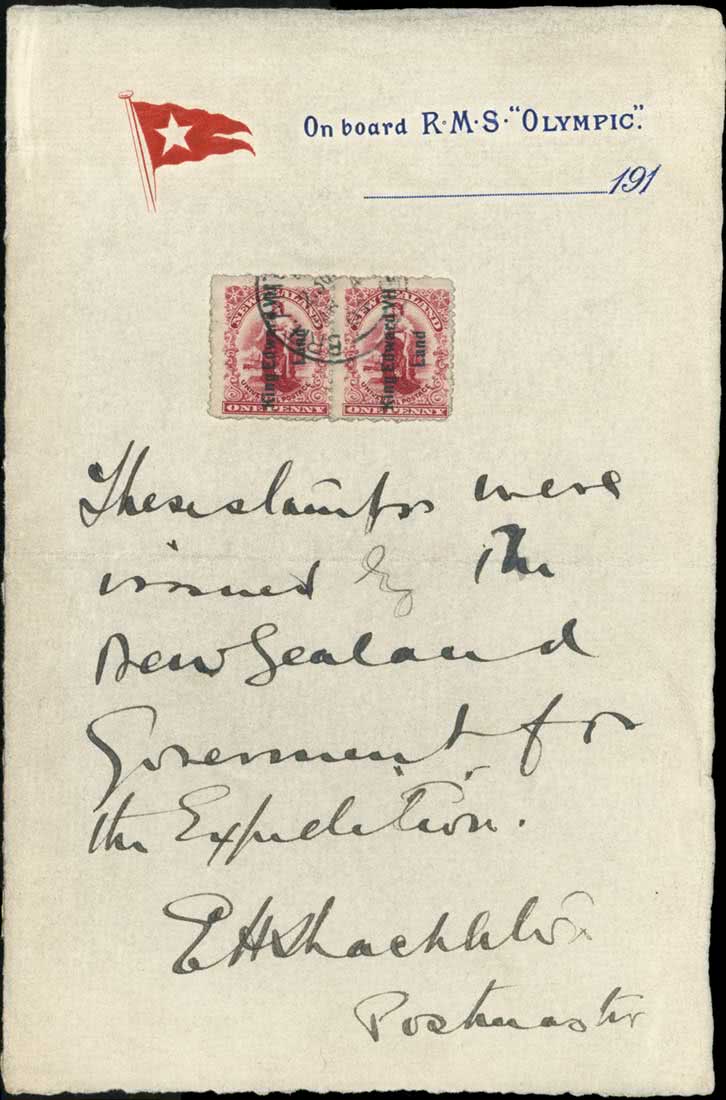 On board R·M·S·"OLYMPIC".
191
NEW ZEALAND
King Edward VII
Land
UNIVERSAL POSTAGE
ONE PENNY
NEW ZEALAND
King Edward VII
Land
UNIVERSAL POSTAGE
ONE PENNY
These stamps were
issued by the
New Zealand
Government for
the Expedition.
EHShackleton
Postmaster